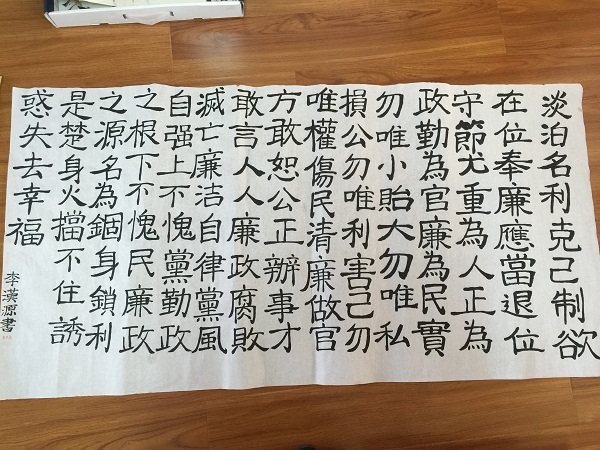 淡泊名利克己制欲
在位奉廉應當退位
守節尤重為人正為
政勤為官廉為民實
勿唯小貽大勿唯私
損公勿唯利害己勿
唯權傷民清廉做官
方敢恕公正辦事才
敢言人人廉政腐敗
滅亡廉洁自律黨風
自强上不愧黨勤政
之根下不愧民廉政
之源名為錮身鎖利
是楚身火擋不住誘
惑失去幸福
李漢源書